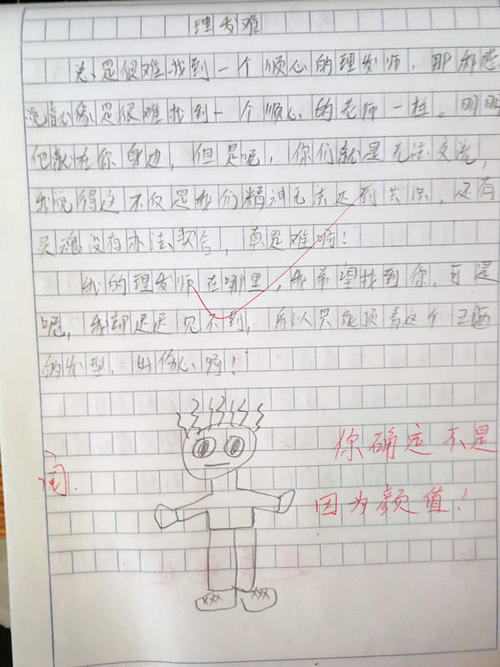 理发难
总是很难找到一个顺心的理发师，那种感
觉就像是很难找到一个顺心的老师一样。明明
他就在你身边，但是呢，你们就是无法交流，
我觉得这不仅是我们精神无法达到共识，还有
灵魂没有办法契合，真是难啊！
我的理发师在哪里，我希望找到你，可是
呢，我却迟迟见不到，所以只能顶着这个
的发型，出，啊！
你确定不是
阅.
因为颜值！